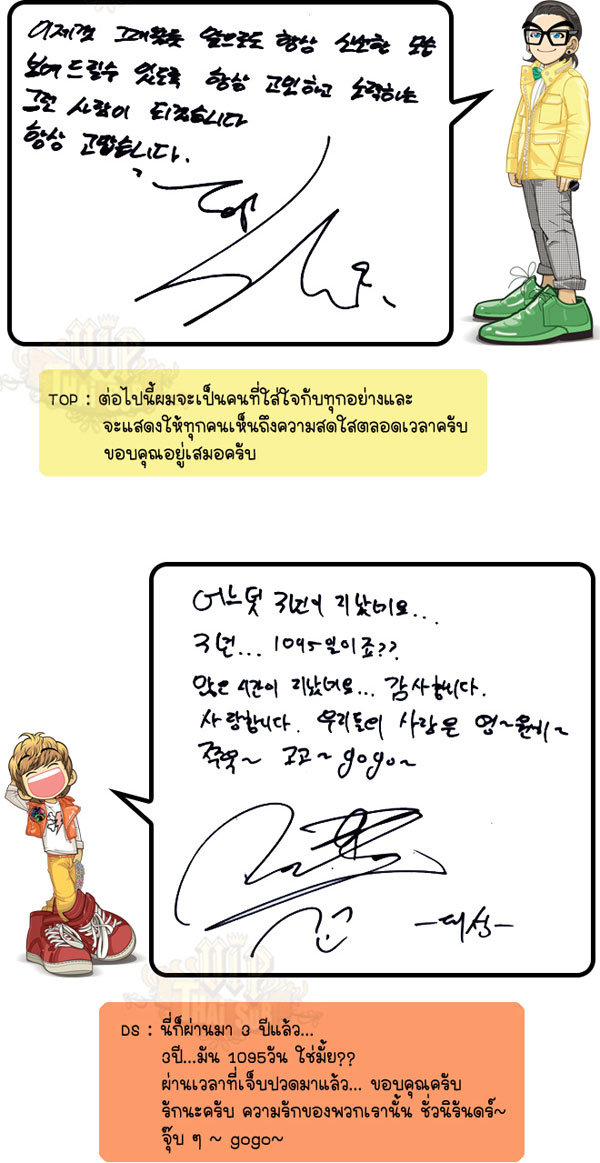 이제껏 그래왔듯 앞으로도 항상 신선한 모습
보여드릴수 있도록 항상 고민하고 노력하는
그런 사람이 되겠습니다
항상 고맙습니다.
VIP
TOP : ต่อไปนี้ผมจะเป็นคนที่ใส่ใจกับทุกอย่างและ
จะแสดงให้ทุกคนเห็นถึงความสดใสตลอดเวลาครับ
ขอบคุณอยู่เสมอครับ
어느덧 3년이 지났네요...
3년... 1095일이죠??
시간이 지났네요... 감사합니다.
사랑합니다. 우리들의 사랑은 영~원히~
쭈욱~ 고고~gogo~
-대성-
VIP
DS : นี่ก็ผ่านมา 3 ปีแล้ว...
3ปี...มัน 1095วัน ใช่มั้ย??
ผ่านเวลาที่เจ็บปวดมาแล้ว... ขอบคุณครับ
รักนะครับ ความรักของพวกเรานั้น ชั่วนิรันดร์~
จุ๊บ ๆ ~ gogo~